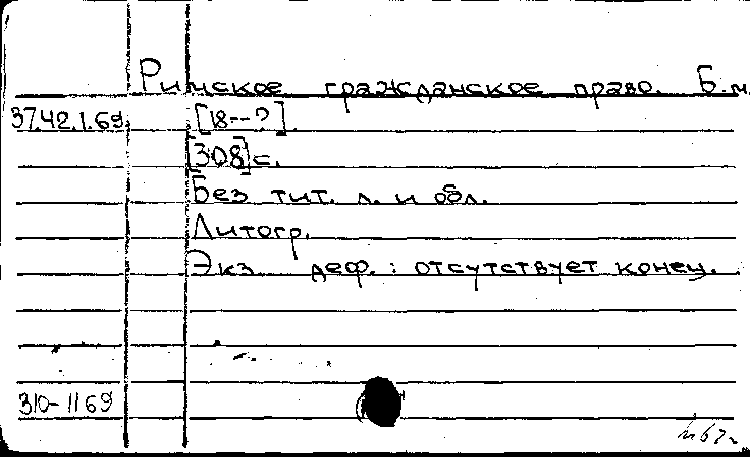 Римское гражданское право. Б.м.
37.42.1.69 [18--?].
[308]с.
Без тит. л. и обл.
Литогр.
Экз деф.: отсутствует конец.
310-1169